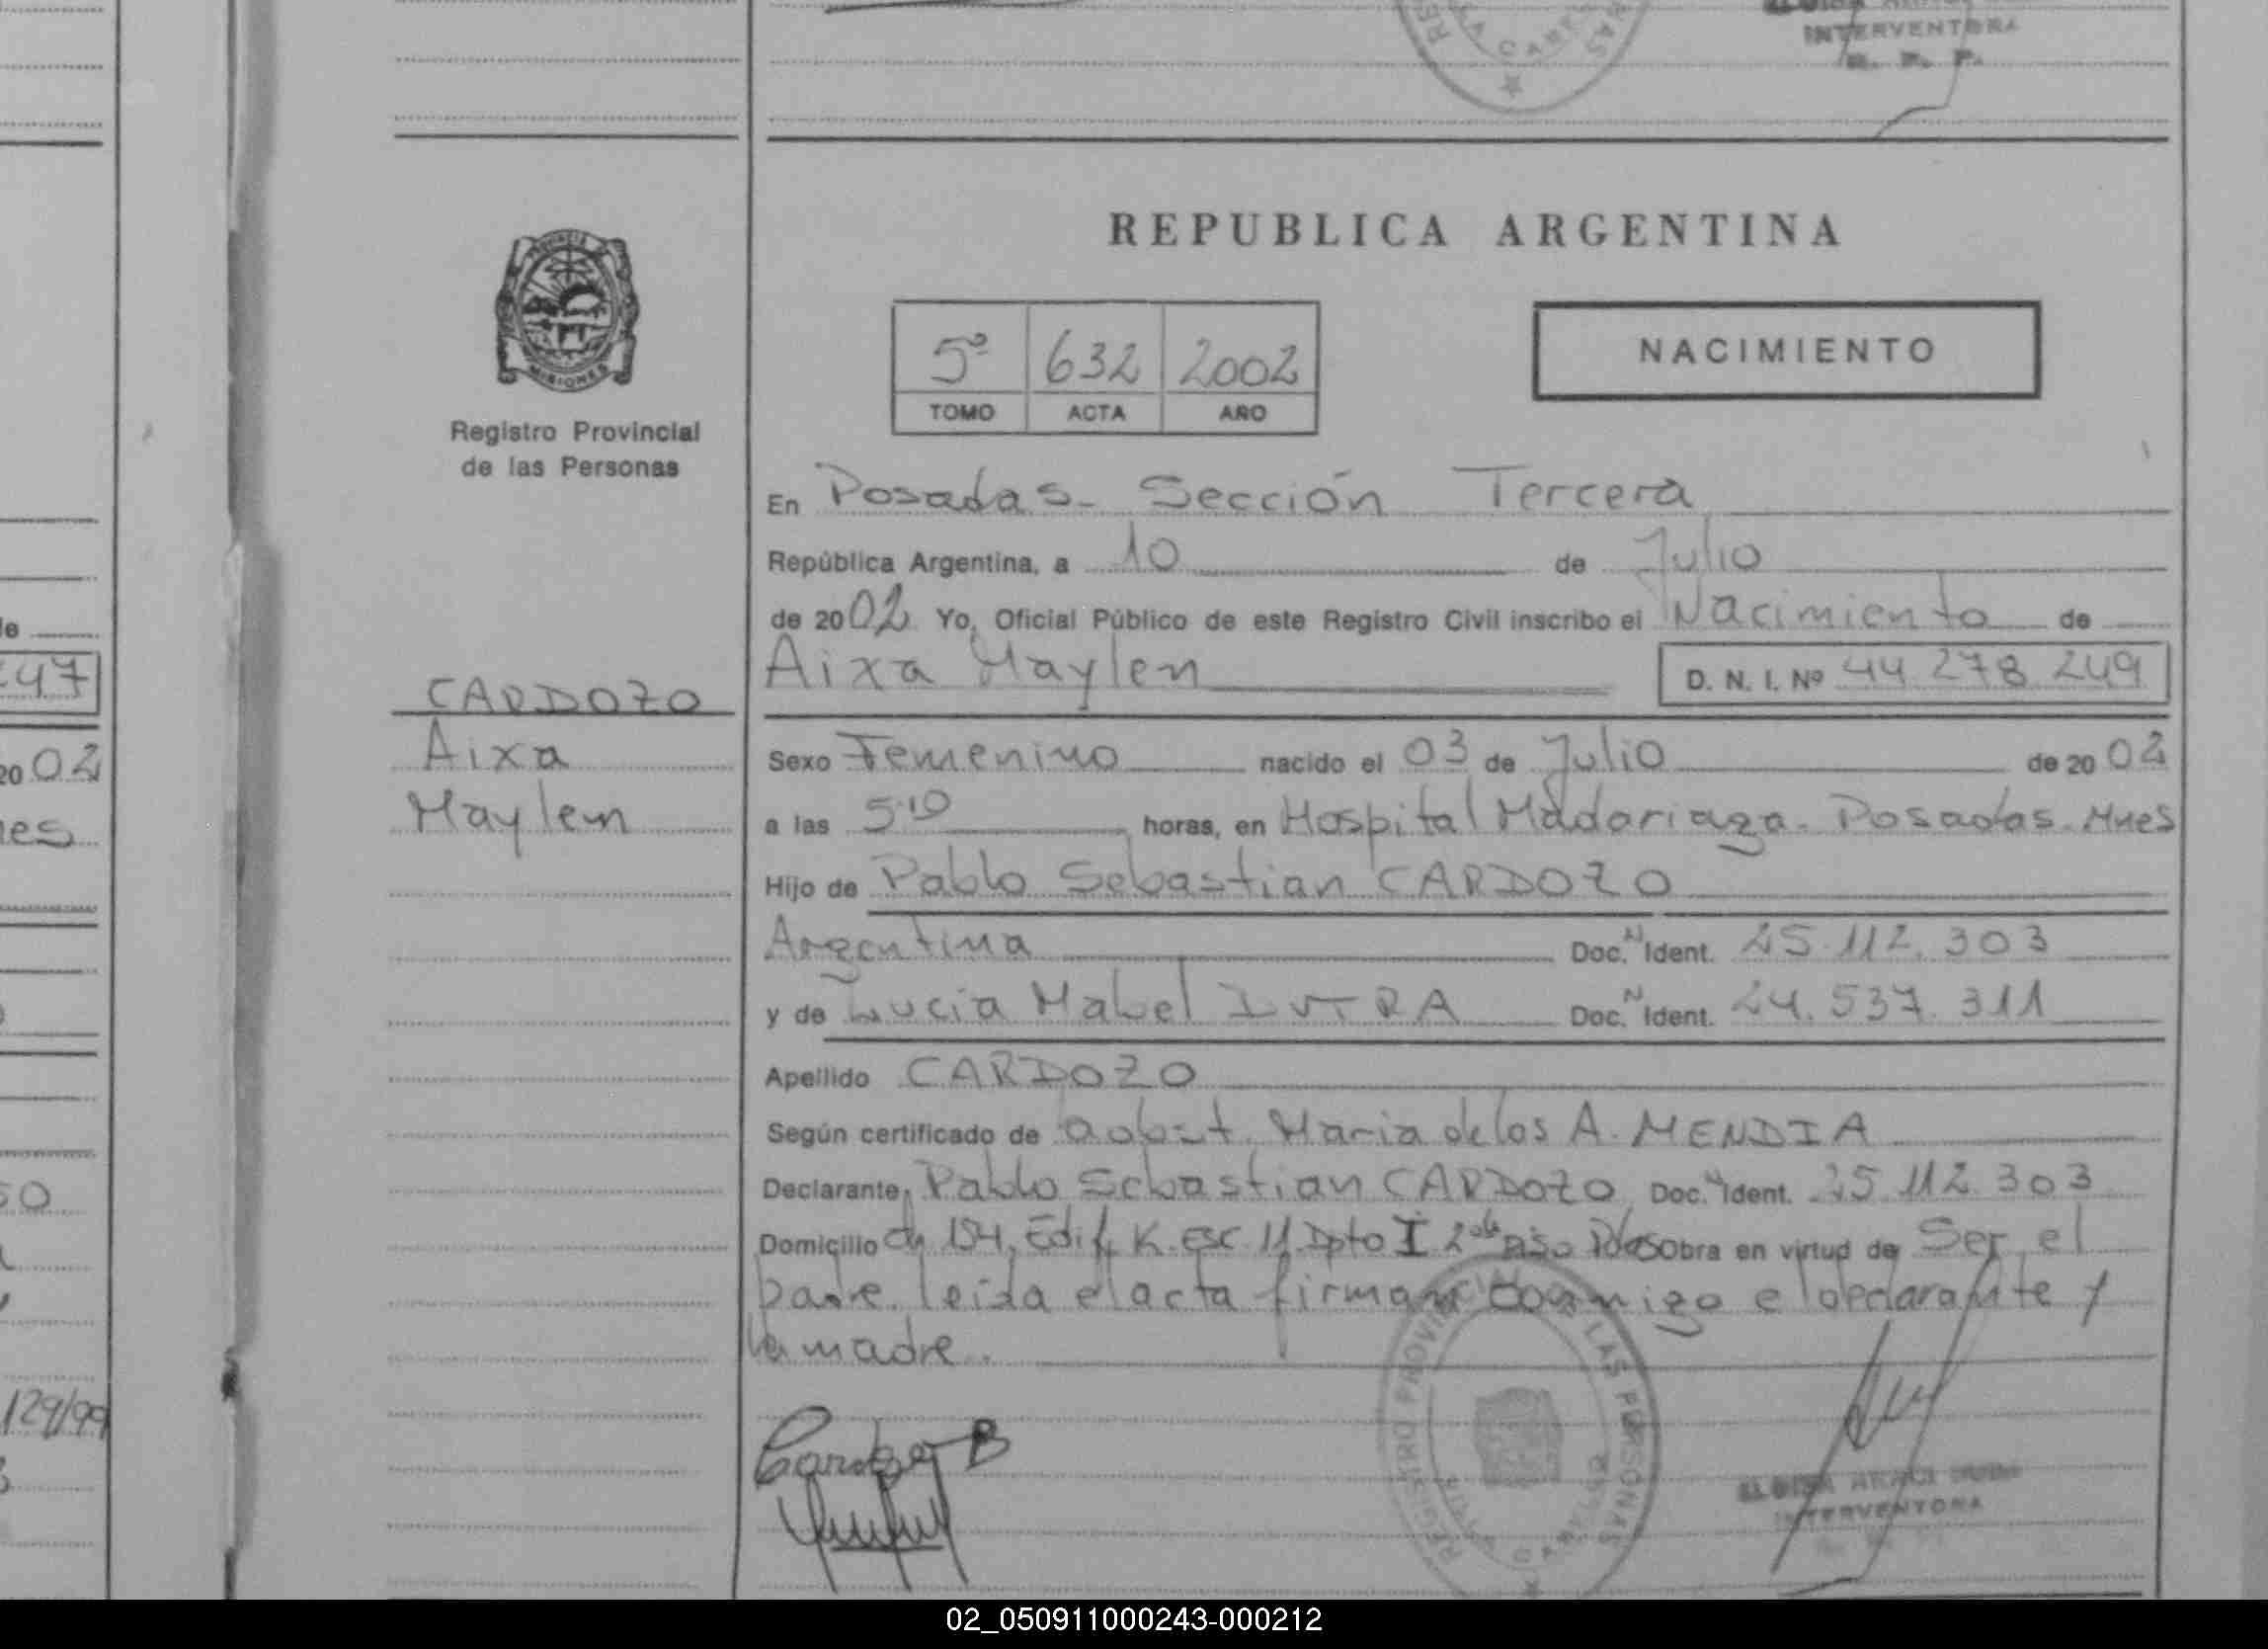 INTERVENTORA
R. P. P.
REPUBLICA ARGENTINA
PROVINCIA DE
MISIONES
Registro Provincial
de las Personas
5º 632 2002
TOMO ACTA AÑO
NACIMIENTO
En Posadas - Sección Tercera
República Argentina, a 10 de Julio
de 2002 Yo, Oficial Público de este Registro Civil inscribo el Nacimiento de
Aixa Maylen D. N. I. Nº 44 278 249
CARDOZO
Aixa
Maylen
Sexo Femenino nacido el 03 de Julio de 2002
a las 5:10 horas, en Hospital Madariaga. Posadas. Mnes
Hijo de Pablo Sebastian CARDOZO
Argentina Doc. N Ident. 25.112.303
y de Lucia Mabel DUTRA Doc. N Ident. 24.537.311
Apellido CARDOZO
Según certificado de obst. Maria de los A. MENDIA
Declarante, Pablo Sebastian CARDOZO Doc. N Ident. 25.112.303
Domicilio ch 154, Edif K. esc. 11 Dpto I 2do piso Pdas Obra en virtud de Ser el
padre. leida el acta firman conmigo el declarante y
la madre.
REGISTRO PROVINCIAL DE LAS PERSONAS
INTERVENTORA
le
47
20 02
nes
50
129/99
02_050911000243-000212